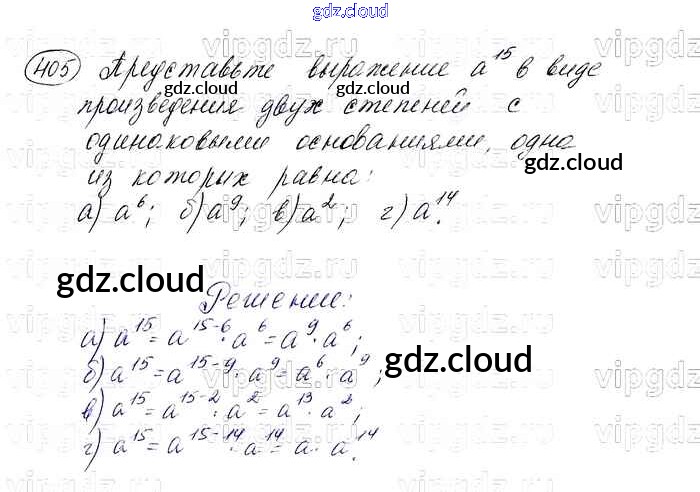 gdz.cloud
405 Представьте выражение a¹⁵ в виде
произведения двух степеней с
одинаковыми основаниями, одна
из которых равна:
а) a⁶; б) a⁹; в) a²; г) a¹⁴.
gdz.cloud
gdz.cloud
gdz.cloud
gdz.cloud
gdz.cloud
Решение:
а) a¹⁵ = a¹⁵⁻⁶ · a⁶ = a⁹ · a⁶;
б) a¹⁵ = a¹⁵⁻⁹ · a⁹ = a⁶ · a⁹;
в) a¹⁵ = a¹⁵⁻² · a² = a¹³ · a²;
г) a¹⁵ = a¹⁵⁻¹⁴ · a¹⁴ = a · a¹⁴.
vipgdz.ru